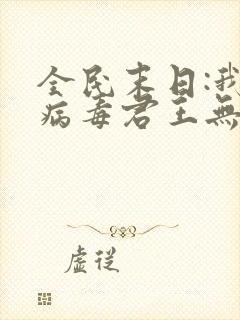 全民末日:我
病毒君王無
虛從